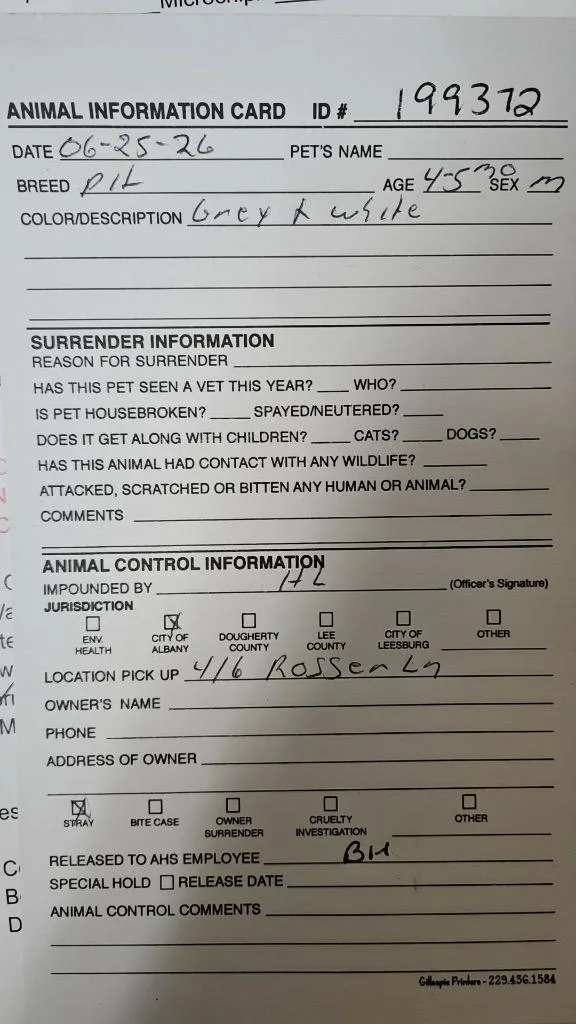 ANIMAL INFORMATION CARD ID # 199372
DATE 06-25-26 PET'S NAME
BREED Pit AGE 4-5 mo SEX m
COLOR/DESCRIPTION Grey & white
SURRENDER INFORMATION
REASON FOR SURRENDER
HAS THIS PET SEEN A VET THIS YEAR? WHO?
IS PET HOUSEBROKEN? SPAYED/NEUTERED?
DOES IT GET ALONG WITH CHILDREN? CATS? DOGS?
HAS THIS ANIMAL HAD CONTACT WITH ANY WILDLIFE?
ATTACKED, SCRATCHED OR BITTEN ANY HUMAN OR ANIMAL?
COMMENTS
ANIMAL CONTROL INFORMATION
IMPOUNDED BY HL (Officer's Signature)
JURISDICTION
ENV. HEALTH CITY OF ALBANY DOUGHERTY COUNTY LEE COUNTY CITY OF LEESBURG OTHER
LOCATION PICK UP 416 Rosser Ln
OWNER'S NAME
PHONE
ADDRESS OF OWNER
STRAY BITE CASE OWNER SURRENDER CRUELTY INVESTIGATION OTHER
RELEASED TO AHS EMPLOYEE BH
SPECIAL HOLD RELEASE DATE
ANIMAL CONTROL COMMENTS
Gillespie Printers - 229.436.1584